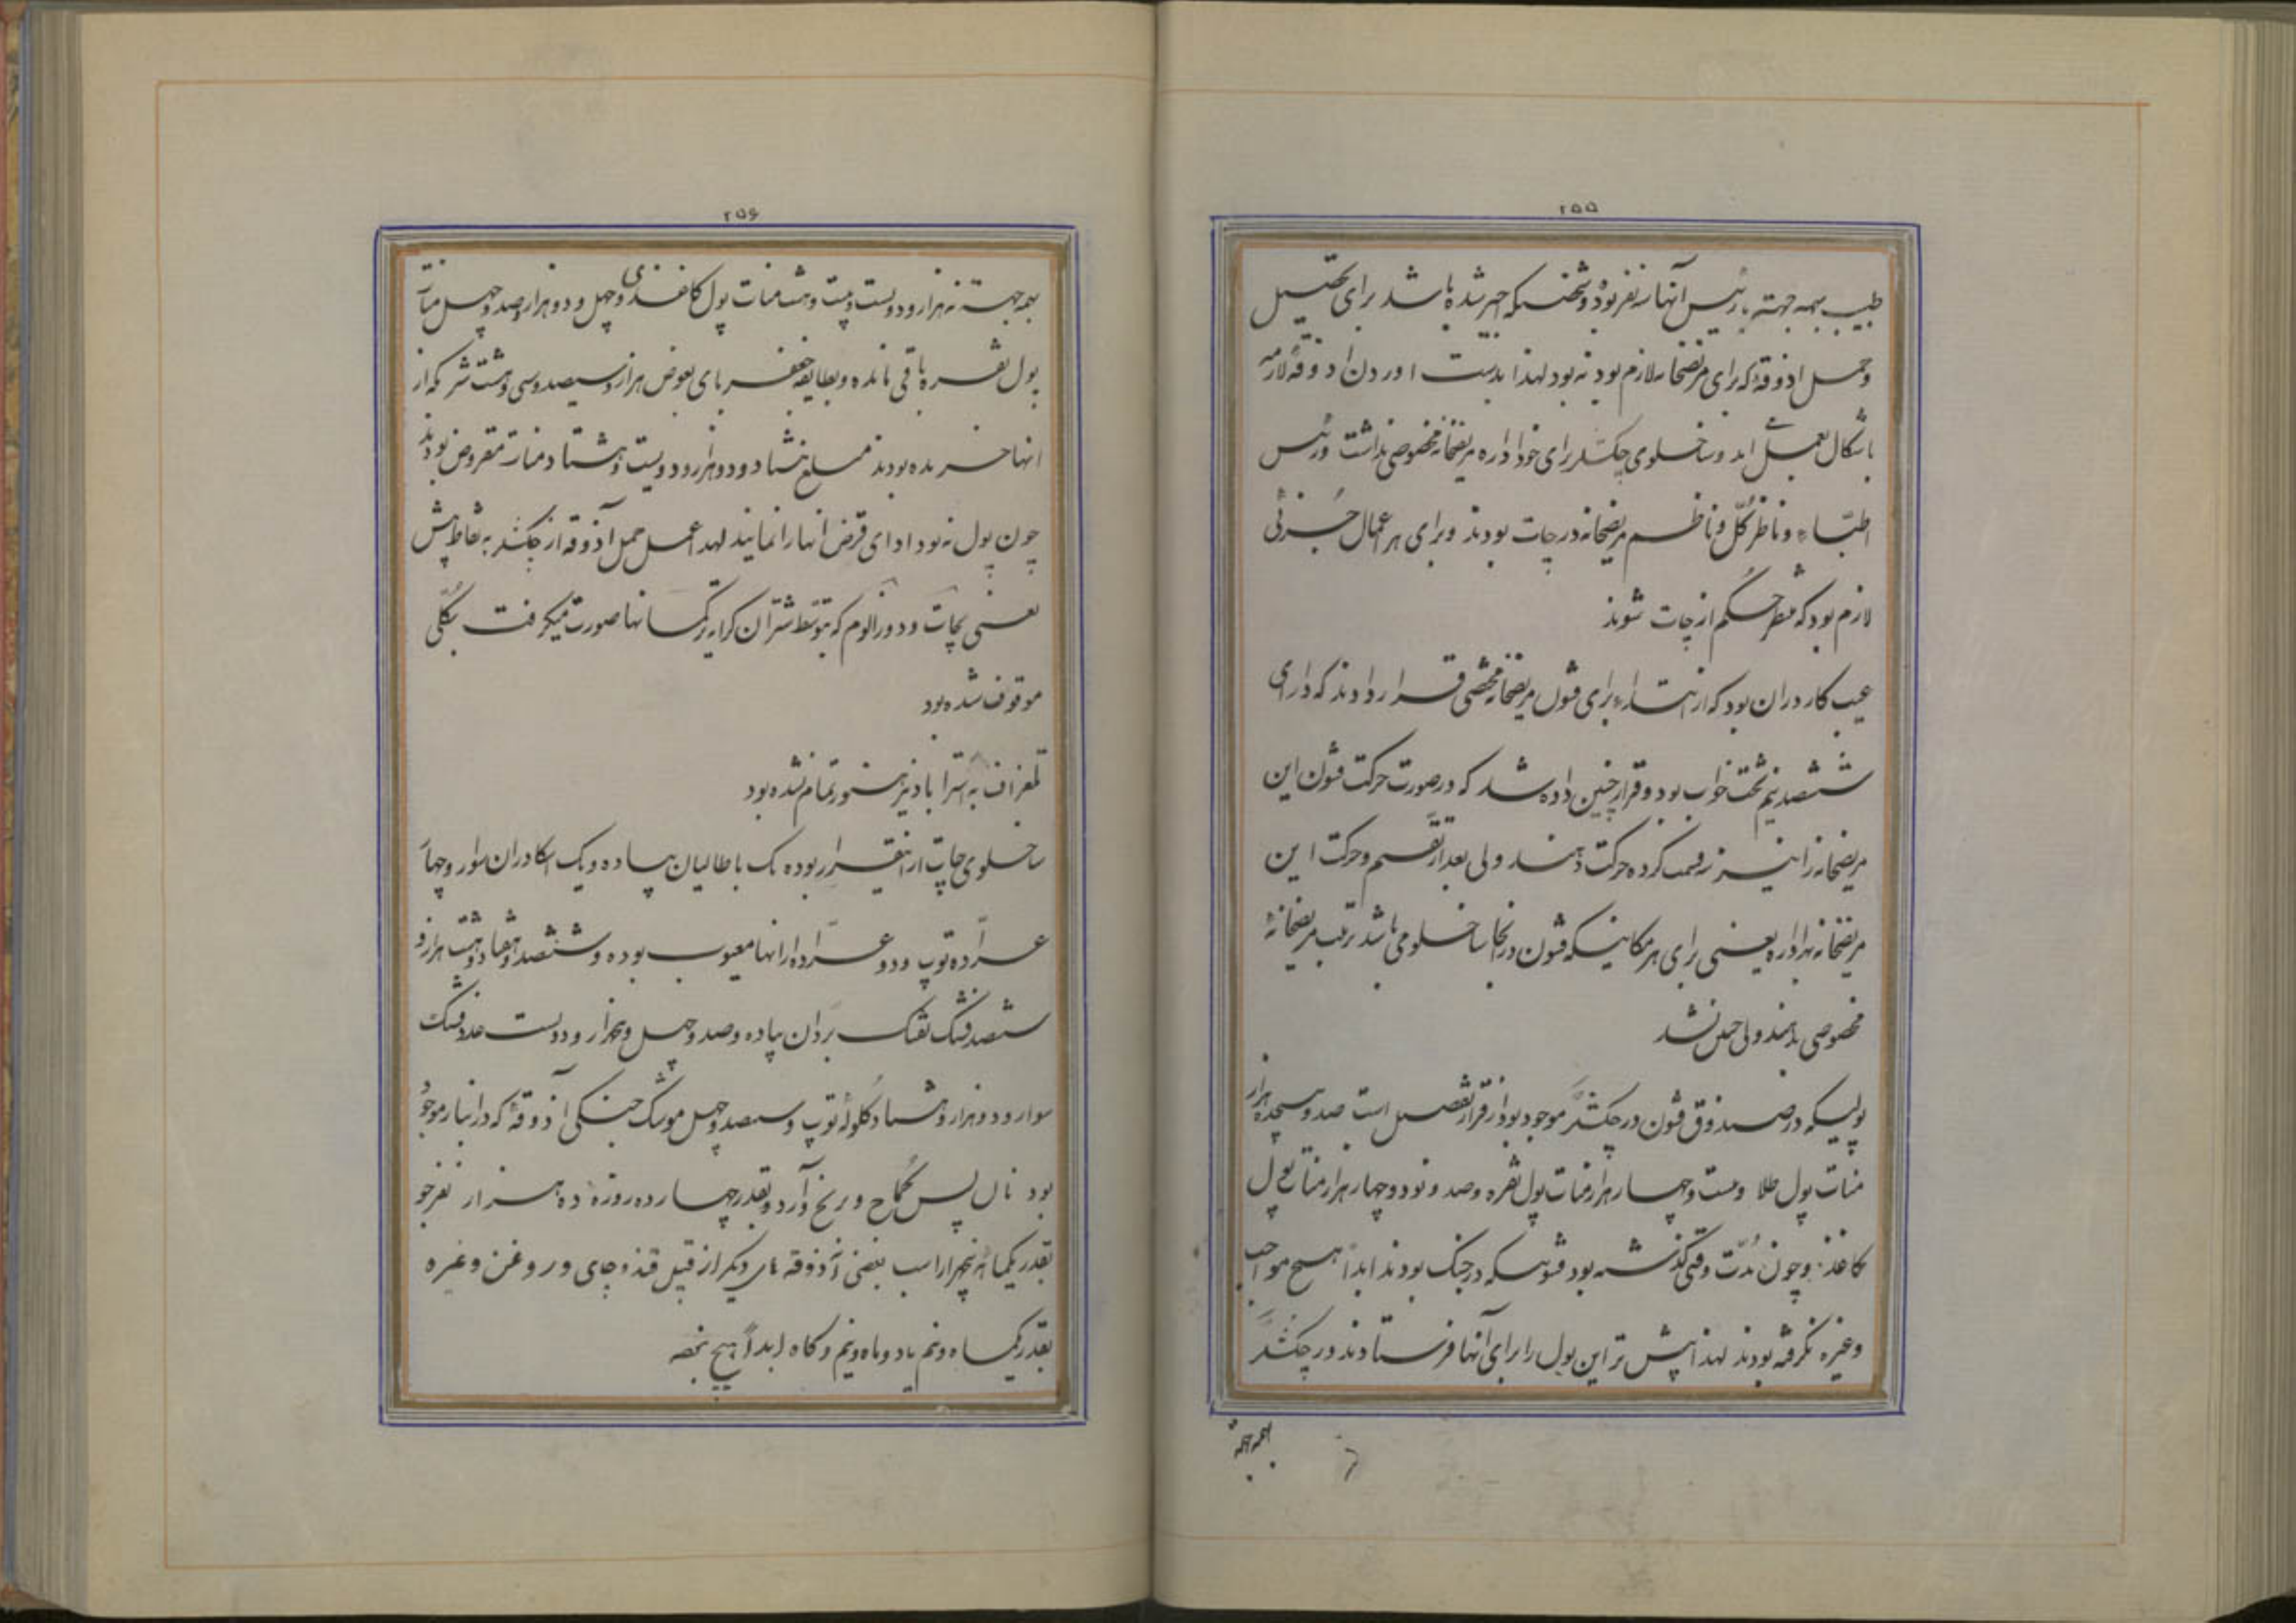 ۲۵۵
طبیب بهمه جهته با رئیس آنها سه نفر بوده و شخصیکه خبر شده باشد برای تحصیل
و حمل اذوقهٔ که برای مریضخانه لازم بود نه بود لهذا بدست اوردن اذوقهٔ لازمه
باشکال بعمل می آمد و ساخلوی چکشلر برای خود اداره مریضخانه مخصوصی نداشت و رئیس
اطبّاء و ناظر کلّ و ناظم مریضخانه در چات بودند و برای هر اعمال جُزئی
لازم بود که منتظر حکم از چات شوند
عیب کار در ان بود که از ابتداء برای قشون مریضخانه مشخصی قرار دادند که دارای
ششصد نیم تخت خواب بود و قرار چنین داده شد که در صورت حرکت قشون این
مریضخانه را نیز سه قسمت کرده حرکت دهند ولی بعد از تقسیم و حرکت این
مریضخانه بهر اداره یعنی برای هر مکانیکه قشون در انجا ساخلو می باشد ترتیب مریضخانهٔ
مخصوصی بدهند ولی چنین نشد
پولیکه در صندوق قشون در چکشلر موجود بود از قرار تفصیل است صد و هیجده هزار
منات پول طلا و بیست و چهار هزار منات پول نقره و صد و نود و چهار هزار منات پول
کاغذ و چون مُدّت وقتی گذشته بود قشونیکه در جنگ بودند ابداً هیچ مواجب
و غیره نگرفته بودند لهذا پیش تر این پول را برای آنها فرستادند در چکشلر
بهمه جهته
۲۵۶
بهمه جهته نه هزار و دویست و بیست و هشت منات پول کاغذی و چهل و دو هزار و صد و چهل منات
پول نقره باقی مانده و بطایفه جعفربای بعوض هزار و سیصد و سی و هشت شتر که از
انها خریده بودند مبلغ هشتاد و دو هزار و دویست و هشتاد منات مقروض بودند
چون پول نه بود ادای قرض انها را نمایند لهذا عمل حمل آذوقه از چکشلر به نقاط پیش
یعنی بچات و دوزالوم که بتوسط شتران کرایه ترکمانها صورت میگرفت بکلّی
موقوف شده بود
تلغراف به استراباد نیز هنوز تمام نشده بود
ساخلوی چات از اینقرار بوده یک باطالیان پیاده و یک اسکادران سوار و چهار
عرّاده توپ و دو عرّاده از انها معیوب بوده و ششصد و هفتاد و هشت هزار و
ششصد فشنگ تفنگ بردان پیاده و صد و چهل و پنجهزار و دویست عدد فشنگ
سوار و دو هزار و هشتاد گلولهٔ توپ و سیصد و چهل موشک جنگی آذوقهٔ که در انبار موجود
بود نان پس کماج و برنج و آرد و بقدر چهارده روزه ده هزار نفر جو
بقدر یکماه پنجهزار اسب بعضی آذوقه های دیگر از قبیل قند و چای و روغن و غیره
بقدر یکماه و نیم یا دو ماه و نیم و کاه ابداً هیچ نه